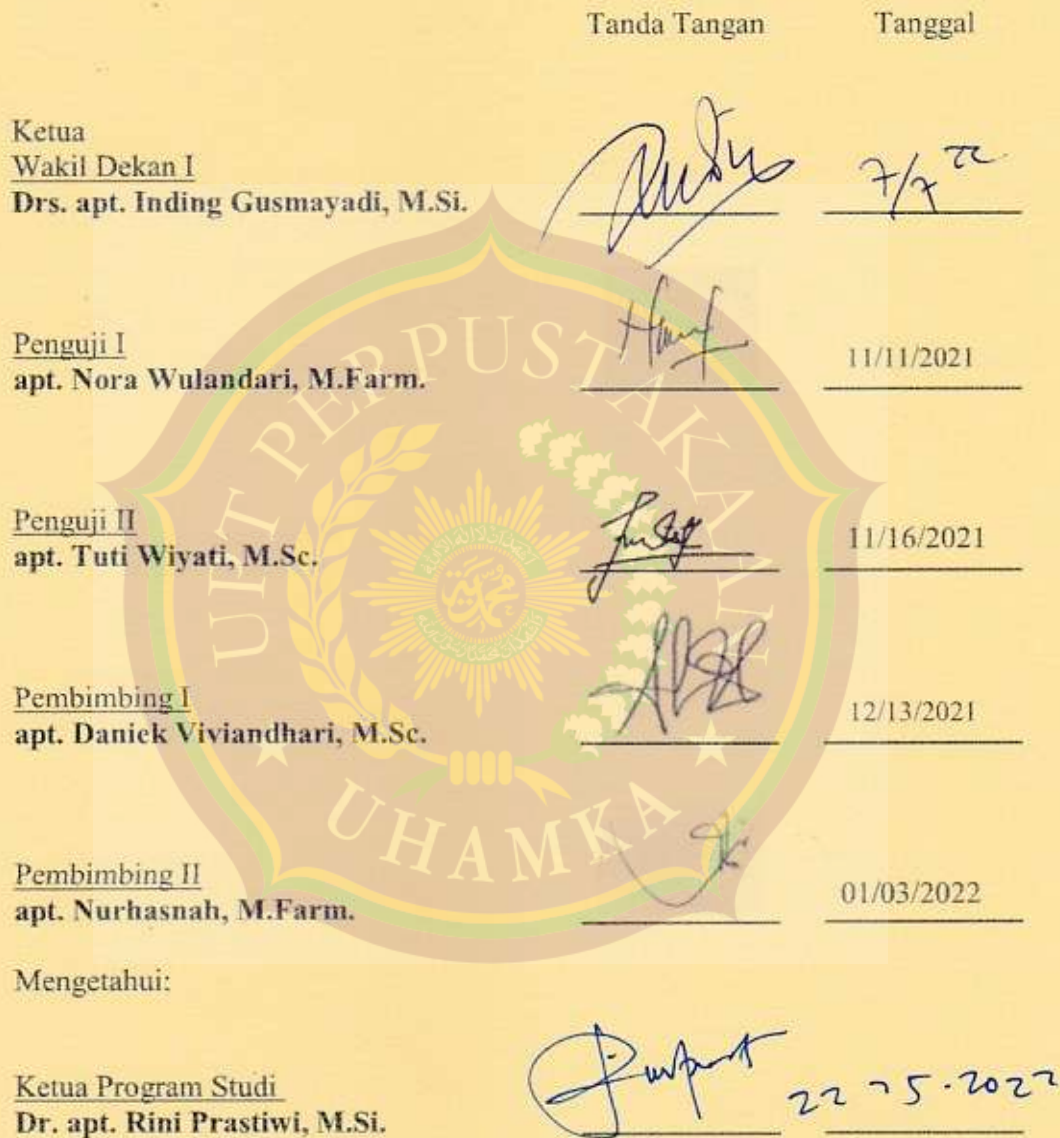 Tanda Tangan Tanggal
Ketua
Wakil Dekan I
Drs. apt. Inding Gusmayadi, M.Si.
7/7 22
Penguji I
apt. Nora Wulandari, M.Farm.
11/11/2021
Penguji II
apt. Tuti Wiyati, M.Sc.
11/16/2021
Pembimbing I
apt. Daniek Viviandhari, M.Sc.
12/13/2021
Pembimbing II
apt. Nurhasnah, M.Farm.
01/03/2022
Mengetahui:
Ketua Program Studi
Dr. apt. Rini Prastiwi, M.Si.
UPT PERPUSTAKAAN
UHAMKA